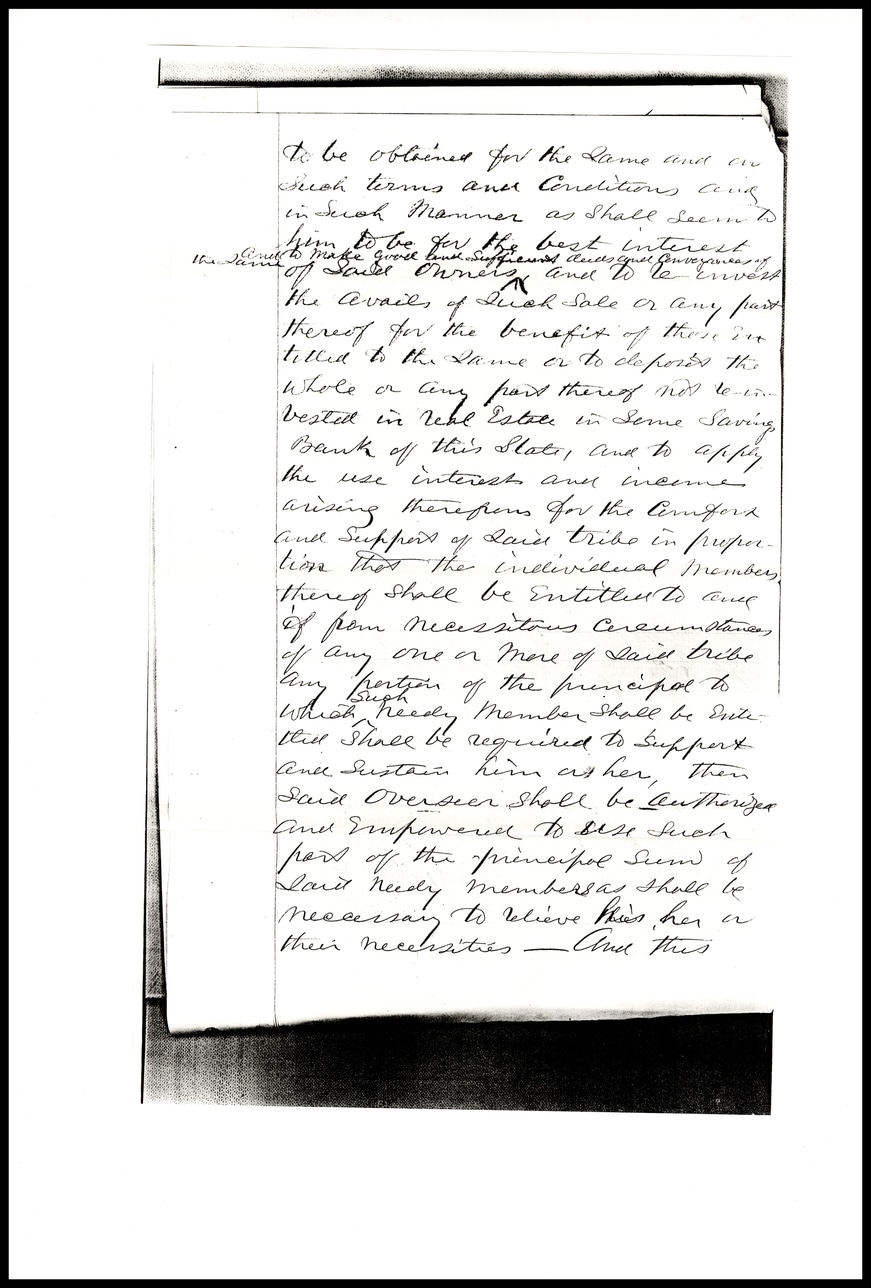 to be obtained for the Same and on
Such terms and Conditions and
in Such Manner as Shall Seem to
him to be for the best interest
and to make good and Sufficient deeds and Conveyances of
the Same
of Said Owners, and to re-invest
the avails of Such Sale or any part
thereof for the benefit of those En
titled to the Same or to deposit the
whole or any part thereof not re-in-
vested in real Estate in Some Savings
Bank of this State, and to apply
the use interest and income
arising therefrom for the Comfort
and Support of Said tribe in propor-
tion that the individual Members
thereof Shall be Entitled to and
if from necessitous circumstances
of any one or More of Said tribe
any portion of the principal to
Such
which needy Member Shall be Enti-
tled Shall be required to Support
and Sustain him or her, then
Said Overseer Shall be authorized
and Empowered to use Such
part of the principal Sum of
Said needy members as Shall be
necessary to relieve his, her or
their necessities — And this